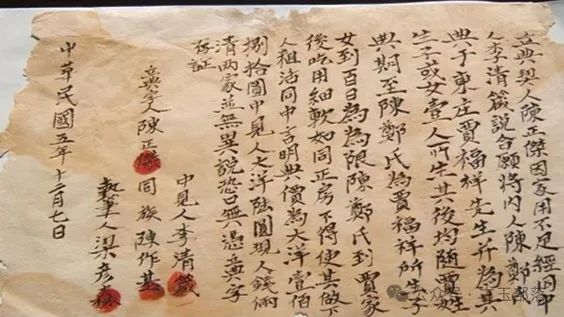 立典契人陳正傑因家用不足經同中
人李清箴說合願將內人陳鄭
典于東庄賈福祥先生并為其
生子或女壹人所生其後均隨賈姓
典期至陳鄭氏為賈福祥所生子
女到百日為為限陳鄭氏到賈家
後吃用細軟如同正房不得使其做下
人租沾同中言明典價為大洋壹佰
捌拾圓中見人七洋陸圓現人錢兩
清兩家並無異說恐口無憑立典字
存証
中見人李清箴
立典人陳正傑 同族陳作基
執筆人梁彥森
中華民國五年十二月七日
公众号 玉部落